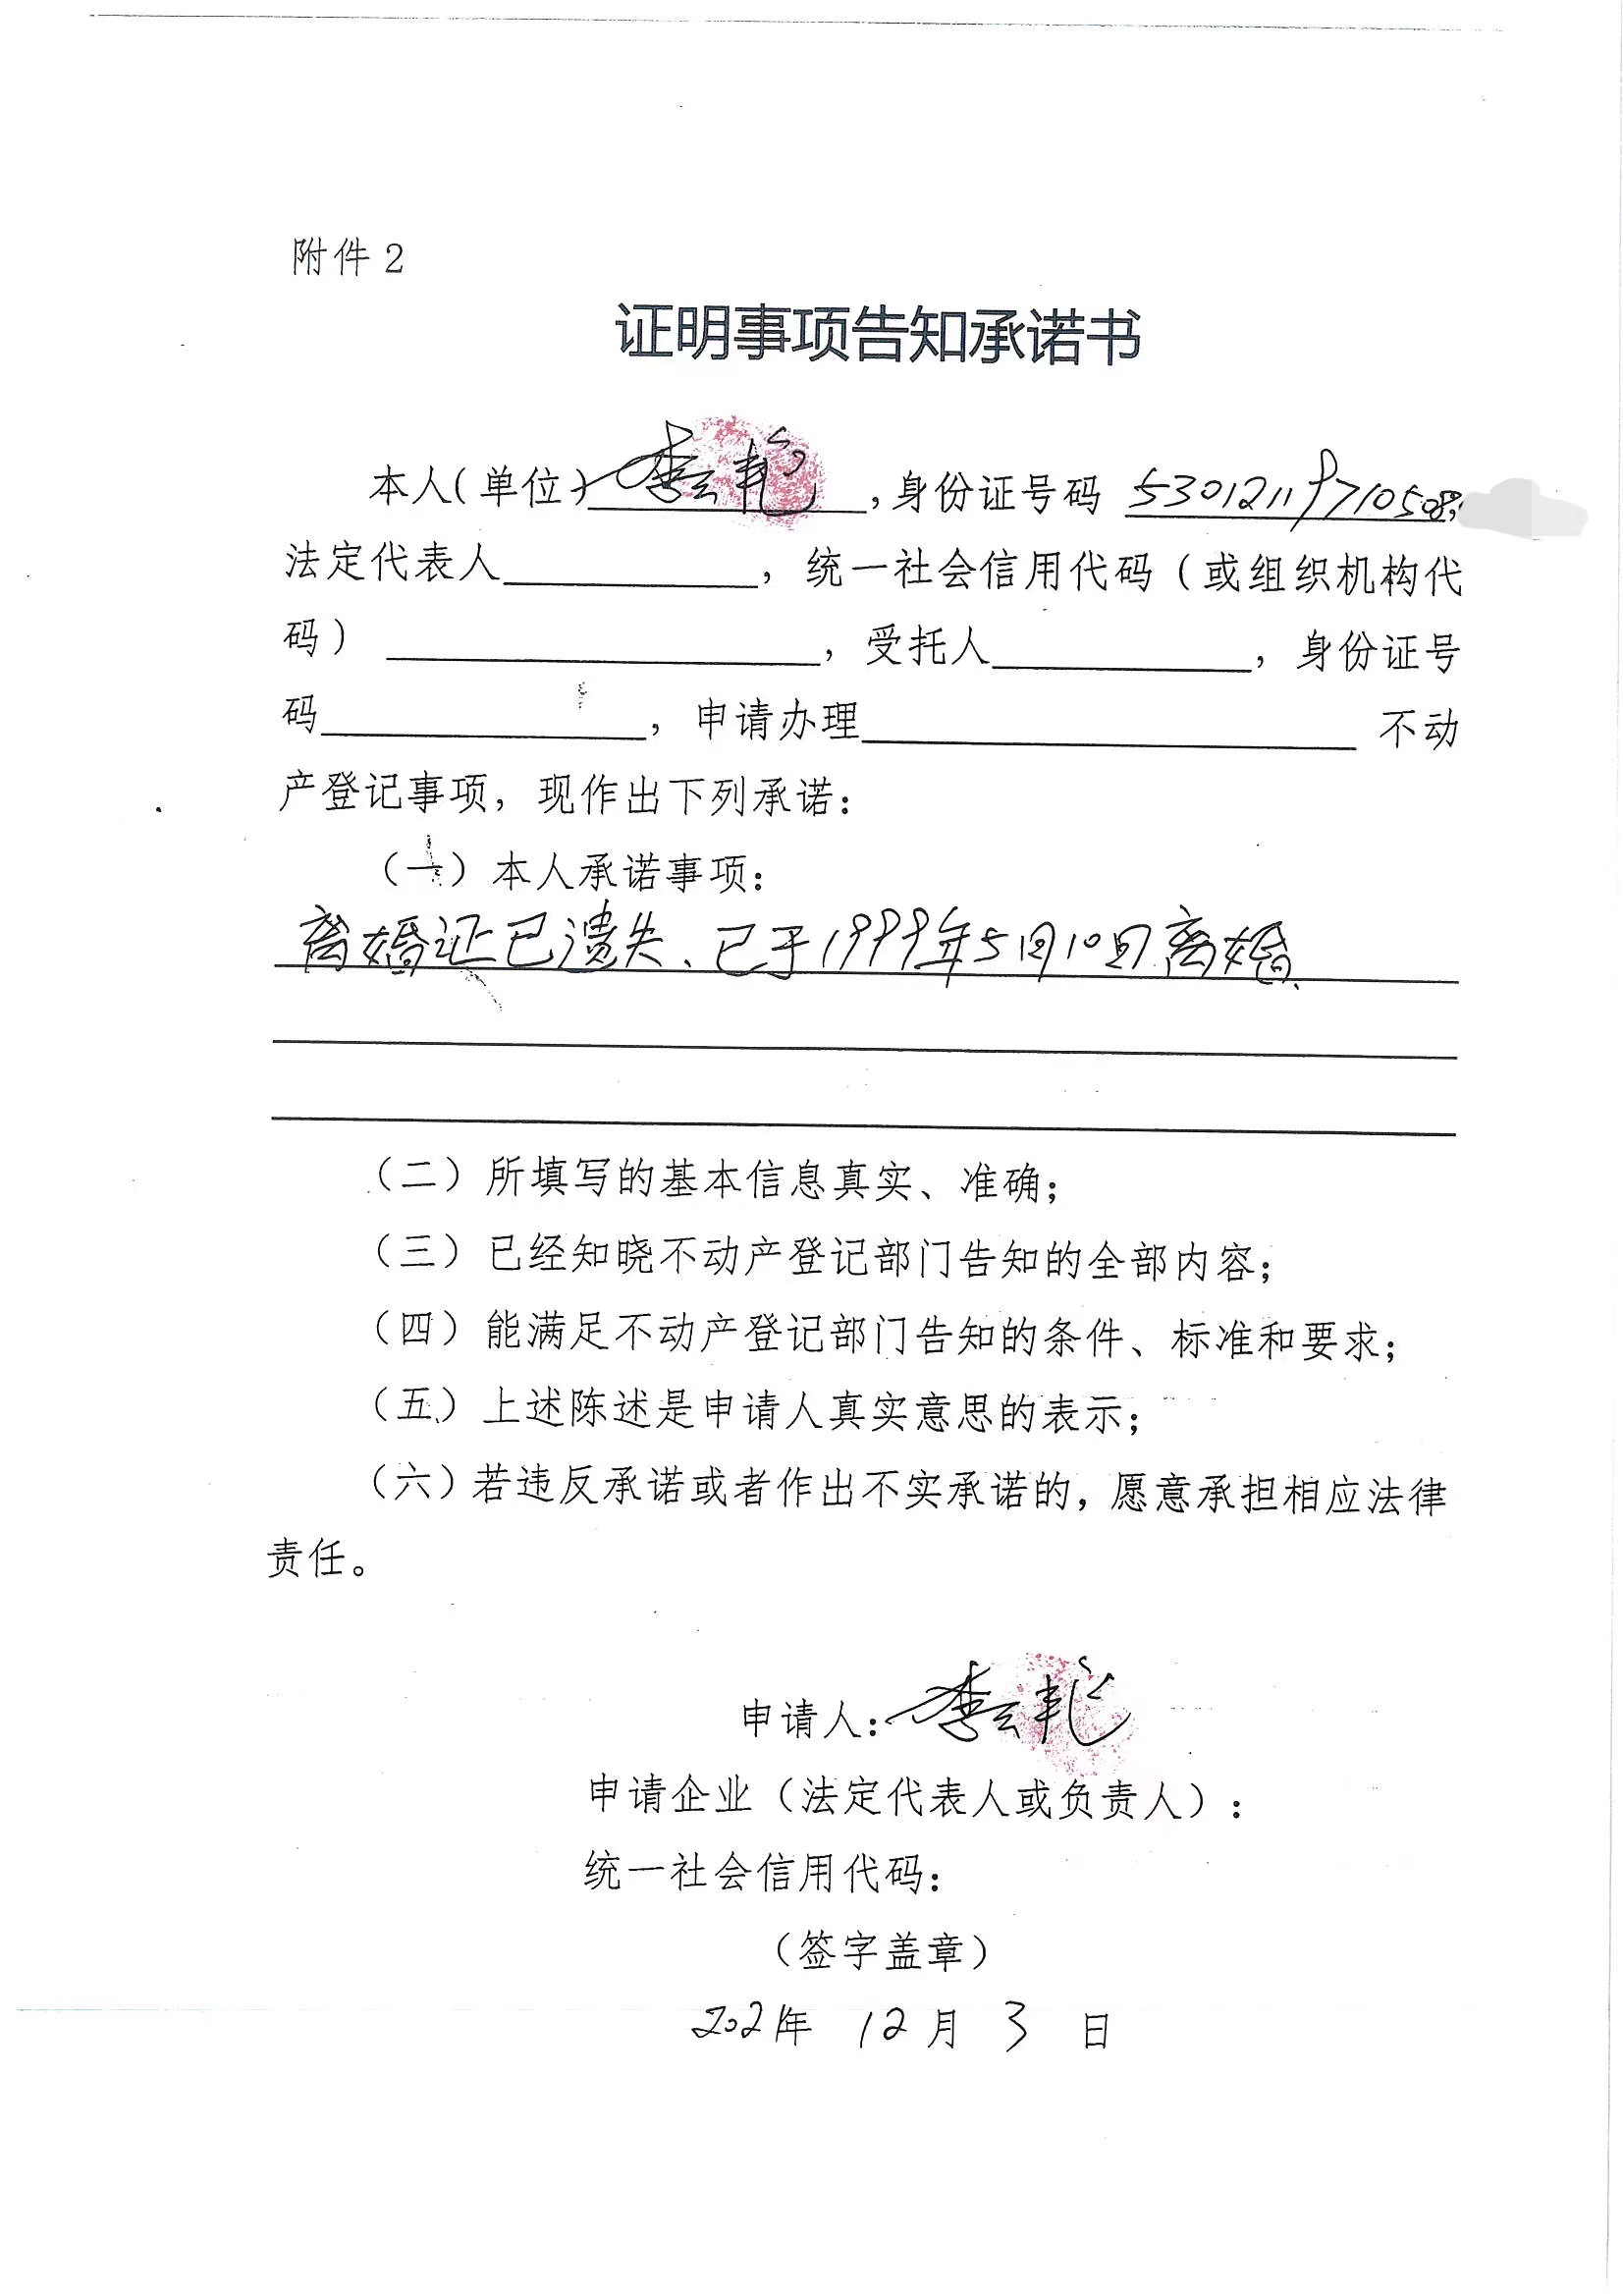 附件2
证明事项告知承诺书
本人(单位)李云艳,身份证号码 53012119710508
法定代表人____________,统一社会信用代码(或组织机构代
码)____________________,受托人____________,身份证号
码_______________,申请办理_______________________不动
产登记事项,现作出下列承诺:
(一)本人承诺事项:
离婚证已遗失、已于1999年5月10日离婚、
(二)所填写的基本信息真实、准确;
(三)已经知晓不动产登记部门告知的全部内容;
(四)能满足不动产登记部门告知的条件、标准和要求;
(五)上述陈述是申请人真实意思的表示;
(六)若违反承诺或者作出不实承诺的,愿意承担相应法律
责任。
申请人:李云艳
申请企业(法定代表人或负责人):
统一社会信用代码:
(签字盖章)
2021年 12月 3 日